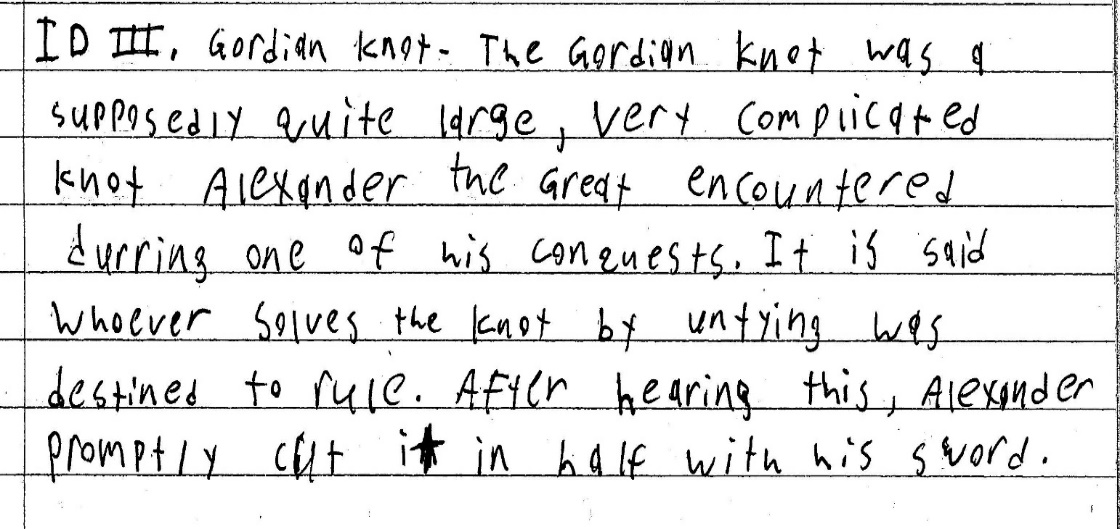 ID III. Gordian knot- The Gordian knot was a
supposedly quite large, very complicated
knot Alexander the Great encountered
durring one of his conquests. It is said
whoever solves the knot by untying was
destined to rule. After hearing this, Alexander
promptly cut it in half with his sword.